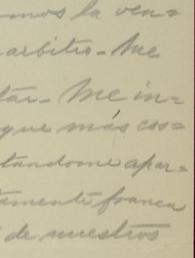 mos la ven=
arbitro. Me
tar. Me in=
que más cos=
tandome apar=
tamente franca
de nuestros